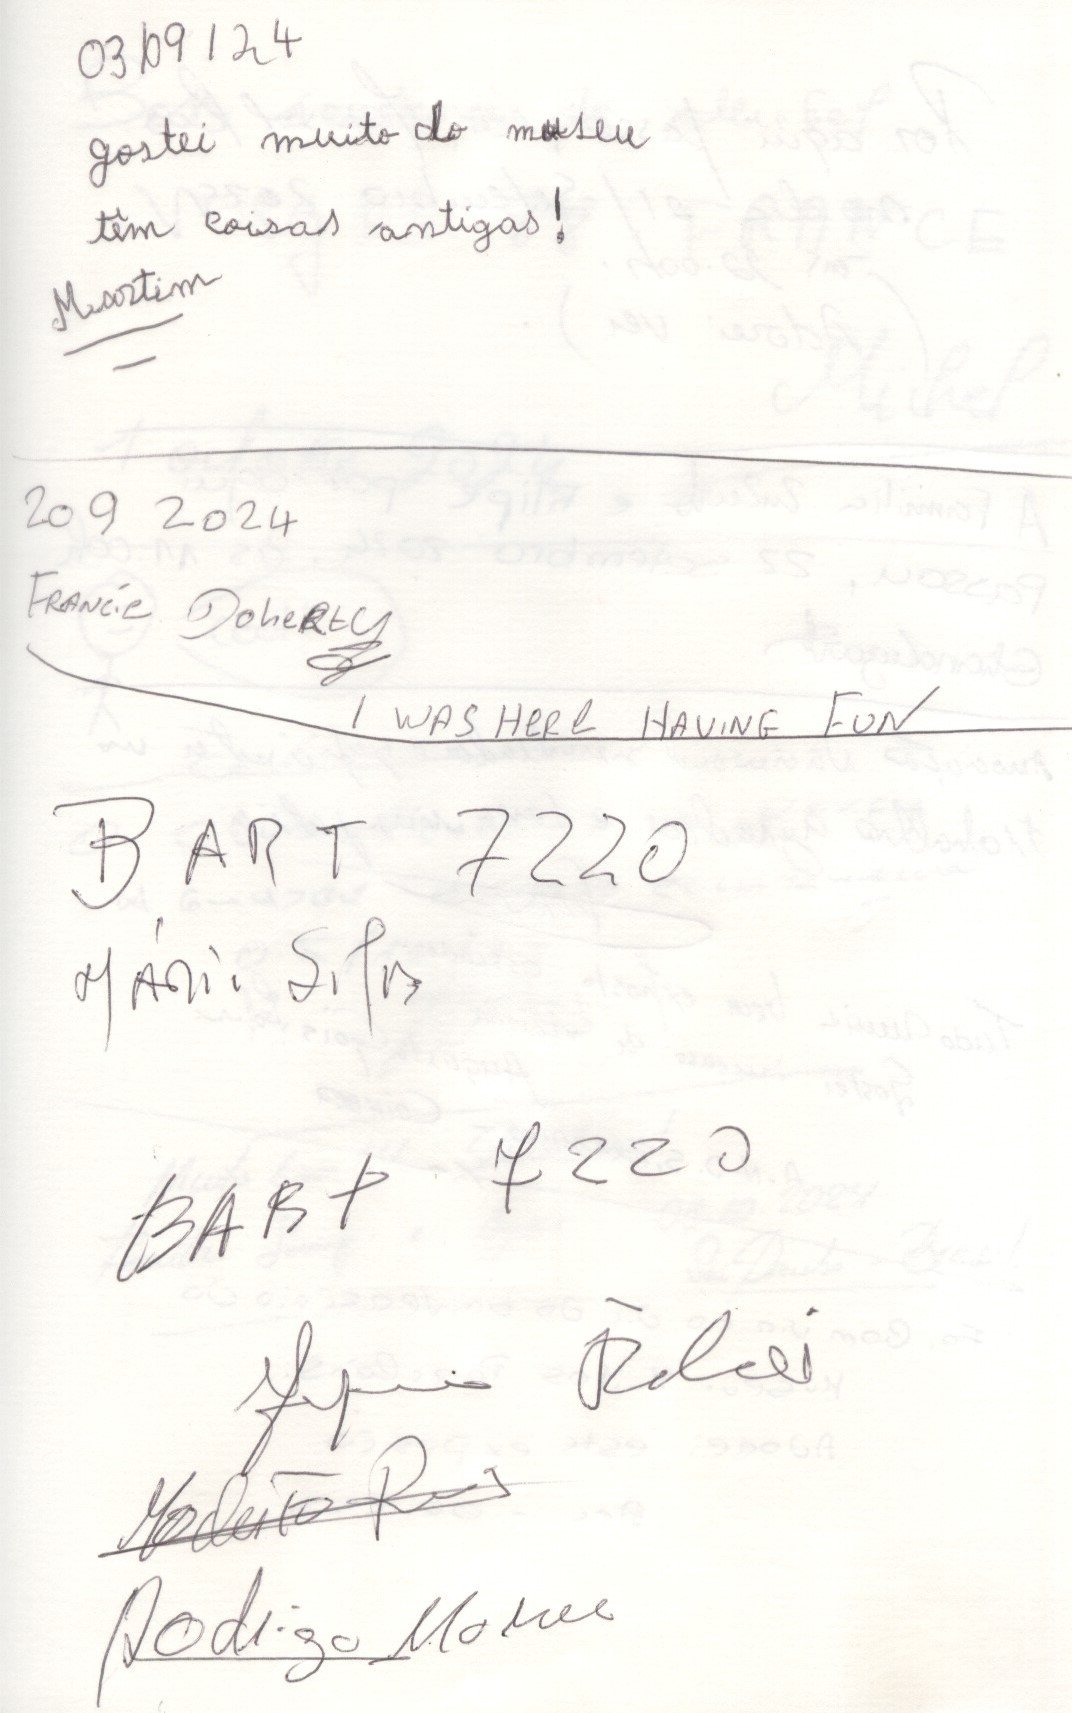 03/09/24
gostei muito do museu
têm coisas antigas!
Martim
209 2024
FRANCIE DOHERTY
I WAS HERE HAVING FUN
BART 7220
MÁRIO SILVA
BART 7220
Rodrigo